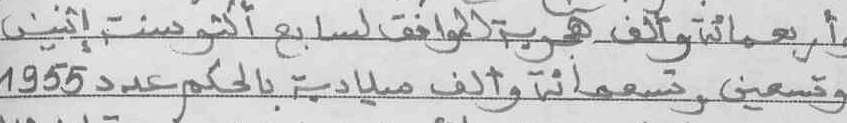 وأربعمائة وألف هجرية الموافق لسابع أكتوبر سنة إثنين
وتسعين وتسعمائة وألف ميلادية بالحكم عدد 1955